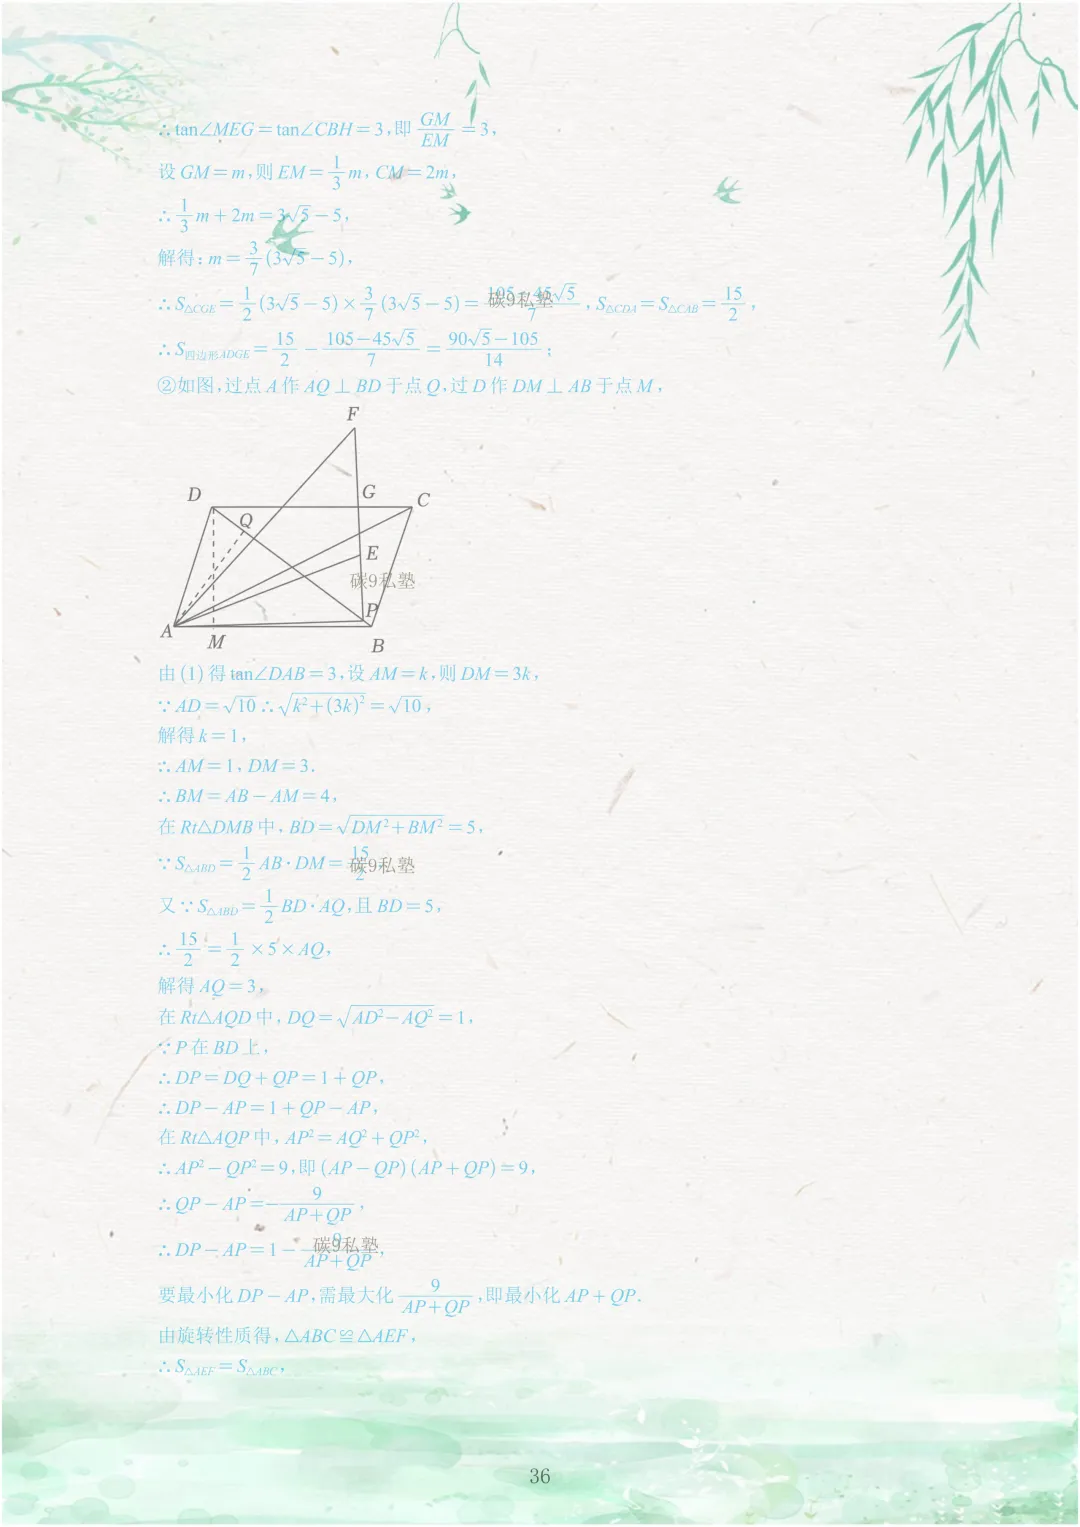 ∴tan∠MEG=tan∠CBH=3,即 GM/EM =3,
设 GM=m,则 EM= 1/3 m, CM=2m,
∴ 1/3 m+2m=3√5-5,
解得:m= 3/7 (3√5-5),
∴S△CGE= 1/2 (3√5-5)× 3/7 (3√5-5)= 105-45√5/7 , S△CDA=S△CAB= 15/2 ,
∴S四边形ADGE= 15/2 - 105-45√5/7 = 90√5-105/14 ;
②如图,过点A作 AQ⊥BD于点Q,过D作DM⊥AB于点M,
F
D G C
Q
E
P
A M B
由(1)得tan∠DAB=3,设AM=k,则DM=3k,
∵AD=√10 ∴√k²+(3k)²=√10,
解得k=1,
∴AM=1, DM=3.
∴BM=AB-AM=4,
在Rt△DMB中, BD=√DM²+BM²=5,
∵S△ABD= 1/2 AB·DM= 15/2
又∵S△ABD= 1/2 BD·AQ,且BD=5,
∴ 15/2 = 1/2 ×5×AQ,
解得AQ=3,
在Rt△AQD中, DQ=√AD²-AQ²=1,
∵P在BD上,
∴DP=DQ+QP=1+QP,
∴DP-AP=1+QP-AP,
在Rt△AQP中, AP²=AQ²+QP²,
∴AP²-QP²=9,即(AP-QP)(AP+QP)=9,
∴QP-AP=- 9/AP+QP ,
∴DP-AP=1- 9/AP+QP ,
要最小化DP-AP,需最大化 9/AP+QP ,即最小化AP+QP.
由旋转性质得,△ABC≌△AEF,
∴S△AEF=S△ABC,
碳9私塾
碳9私塾
碳9私塾
碳9私塾
36